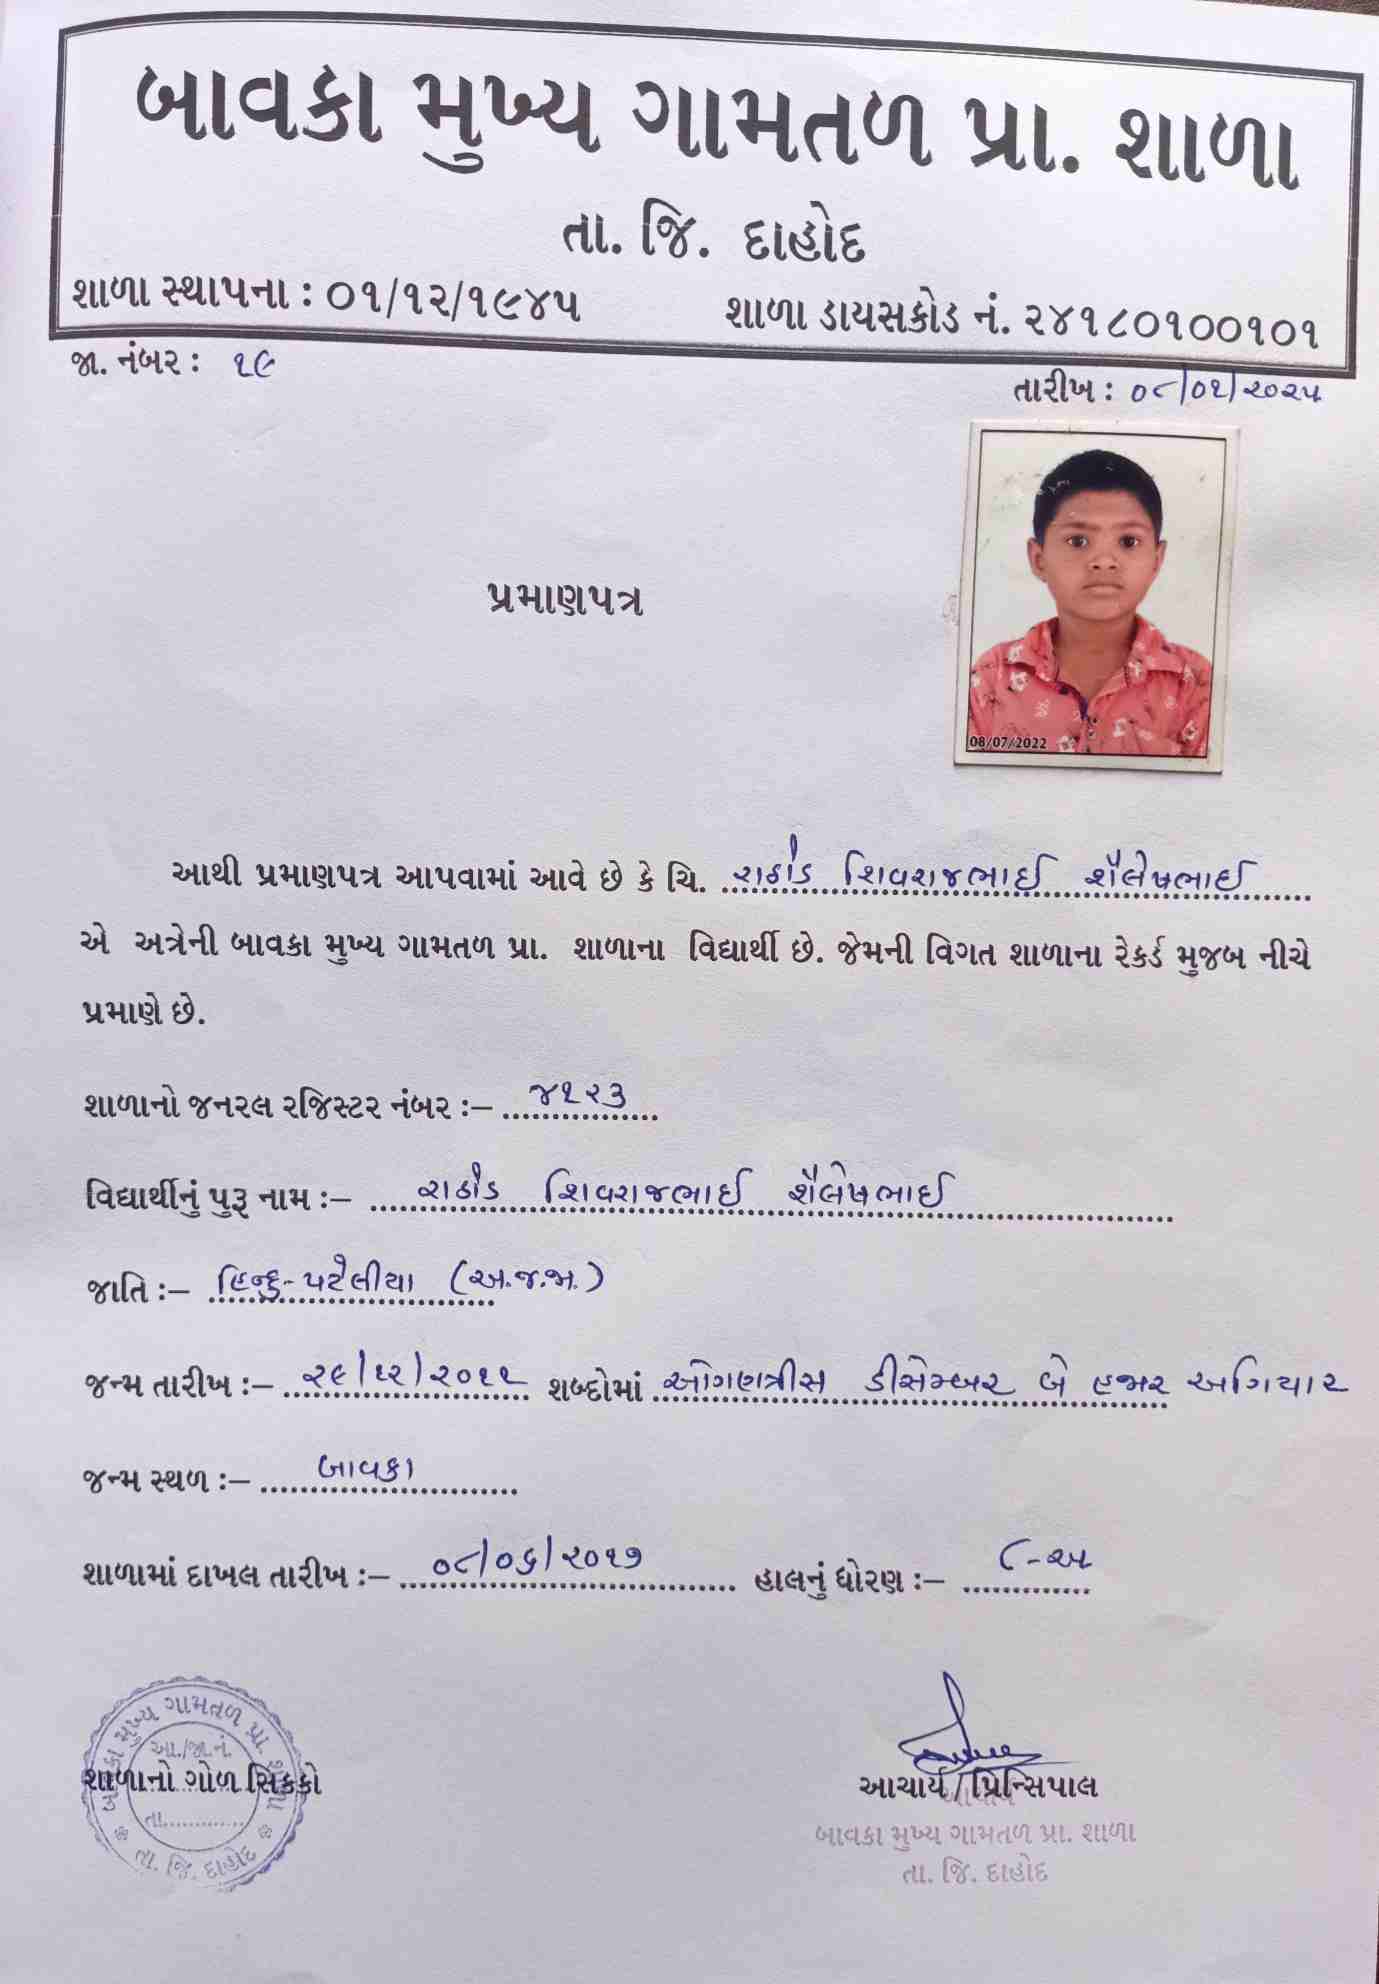 બાવકા મુખ્ય ગામતળ પ્રા. શાળા
તા. જિ. દાહોદ
શાળા સ્થાપના : ૦૧/૧૨/૧૯૪૫ શાળા ડાયસકોડ નં. ૨૪૧૮૦૧૦૦૧૦૧
જા. નંબર : ૧૯
તારીખ : ૦૮/૦૧/૨૦૨૫
08/07/2022
પ્રમાણપત્ર
આથી પ્રમાણપત્ર આપવામાં આવે છે કે ચિ. રાઠોડ શિવરાજભાઈ શૈલેષભાઈ
એ અત્રેની બાવકા મુખ્ય ગામતળ પ્રા. શાળાના વિદ્યાર્થી છે. જેમની વિગત શાળાના રેકર્ડ મુજબ નીચે
પ્રમાણે છે.
શાળાનો જનરલ રજિસ્ટર નંબર :– ૪૧૨૩
વિદ્યાર્થીનું પુરૂ નામ :– રાઠોડ શિવરાજભાઈ શૈલેષભાઈ
જાતિ :– હિન્દુ-પટેલીયા (અ.જ.જા.)
જન્મ તારીખ :– ૨૯/૧૨/૨૦૧૧ શબ્દોમાં ઓગણત્રીસ ડીસેમ્બર બે હજાર અગિયાર
જન્મ સ્થળ :– બાવકા
શાળામાં દાખલ તારીખ :– ૦૮/૦૬/૨૦૧૭ હાલનું ધોરણ :– ૮-અ
બાવકા મુખ્ય ગામતળ પ્રા. શાળા
આ./જા.નં.
શાળાનો ગોળ સિક્કો
તા.............
તા. જિ. દાહોદ
આચાર્ય / પ્રિન્સિપાલ
આચાર્ય
બાવકા મુખ્ય ગામતળ પ્રા. શાળા
તા. જિ. દાહોદ